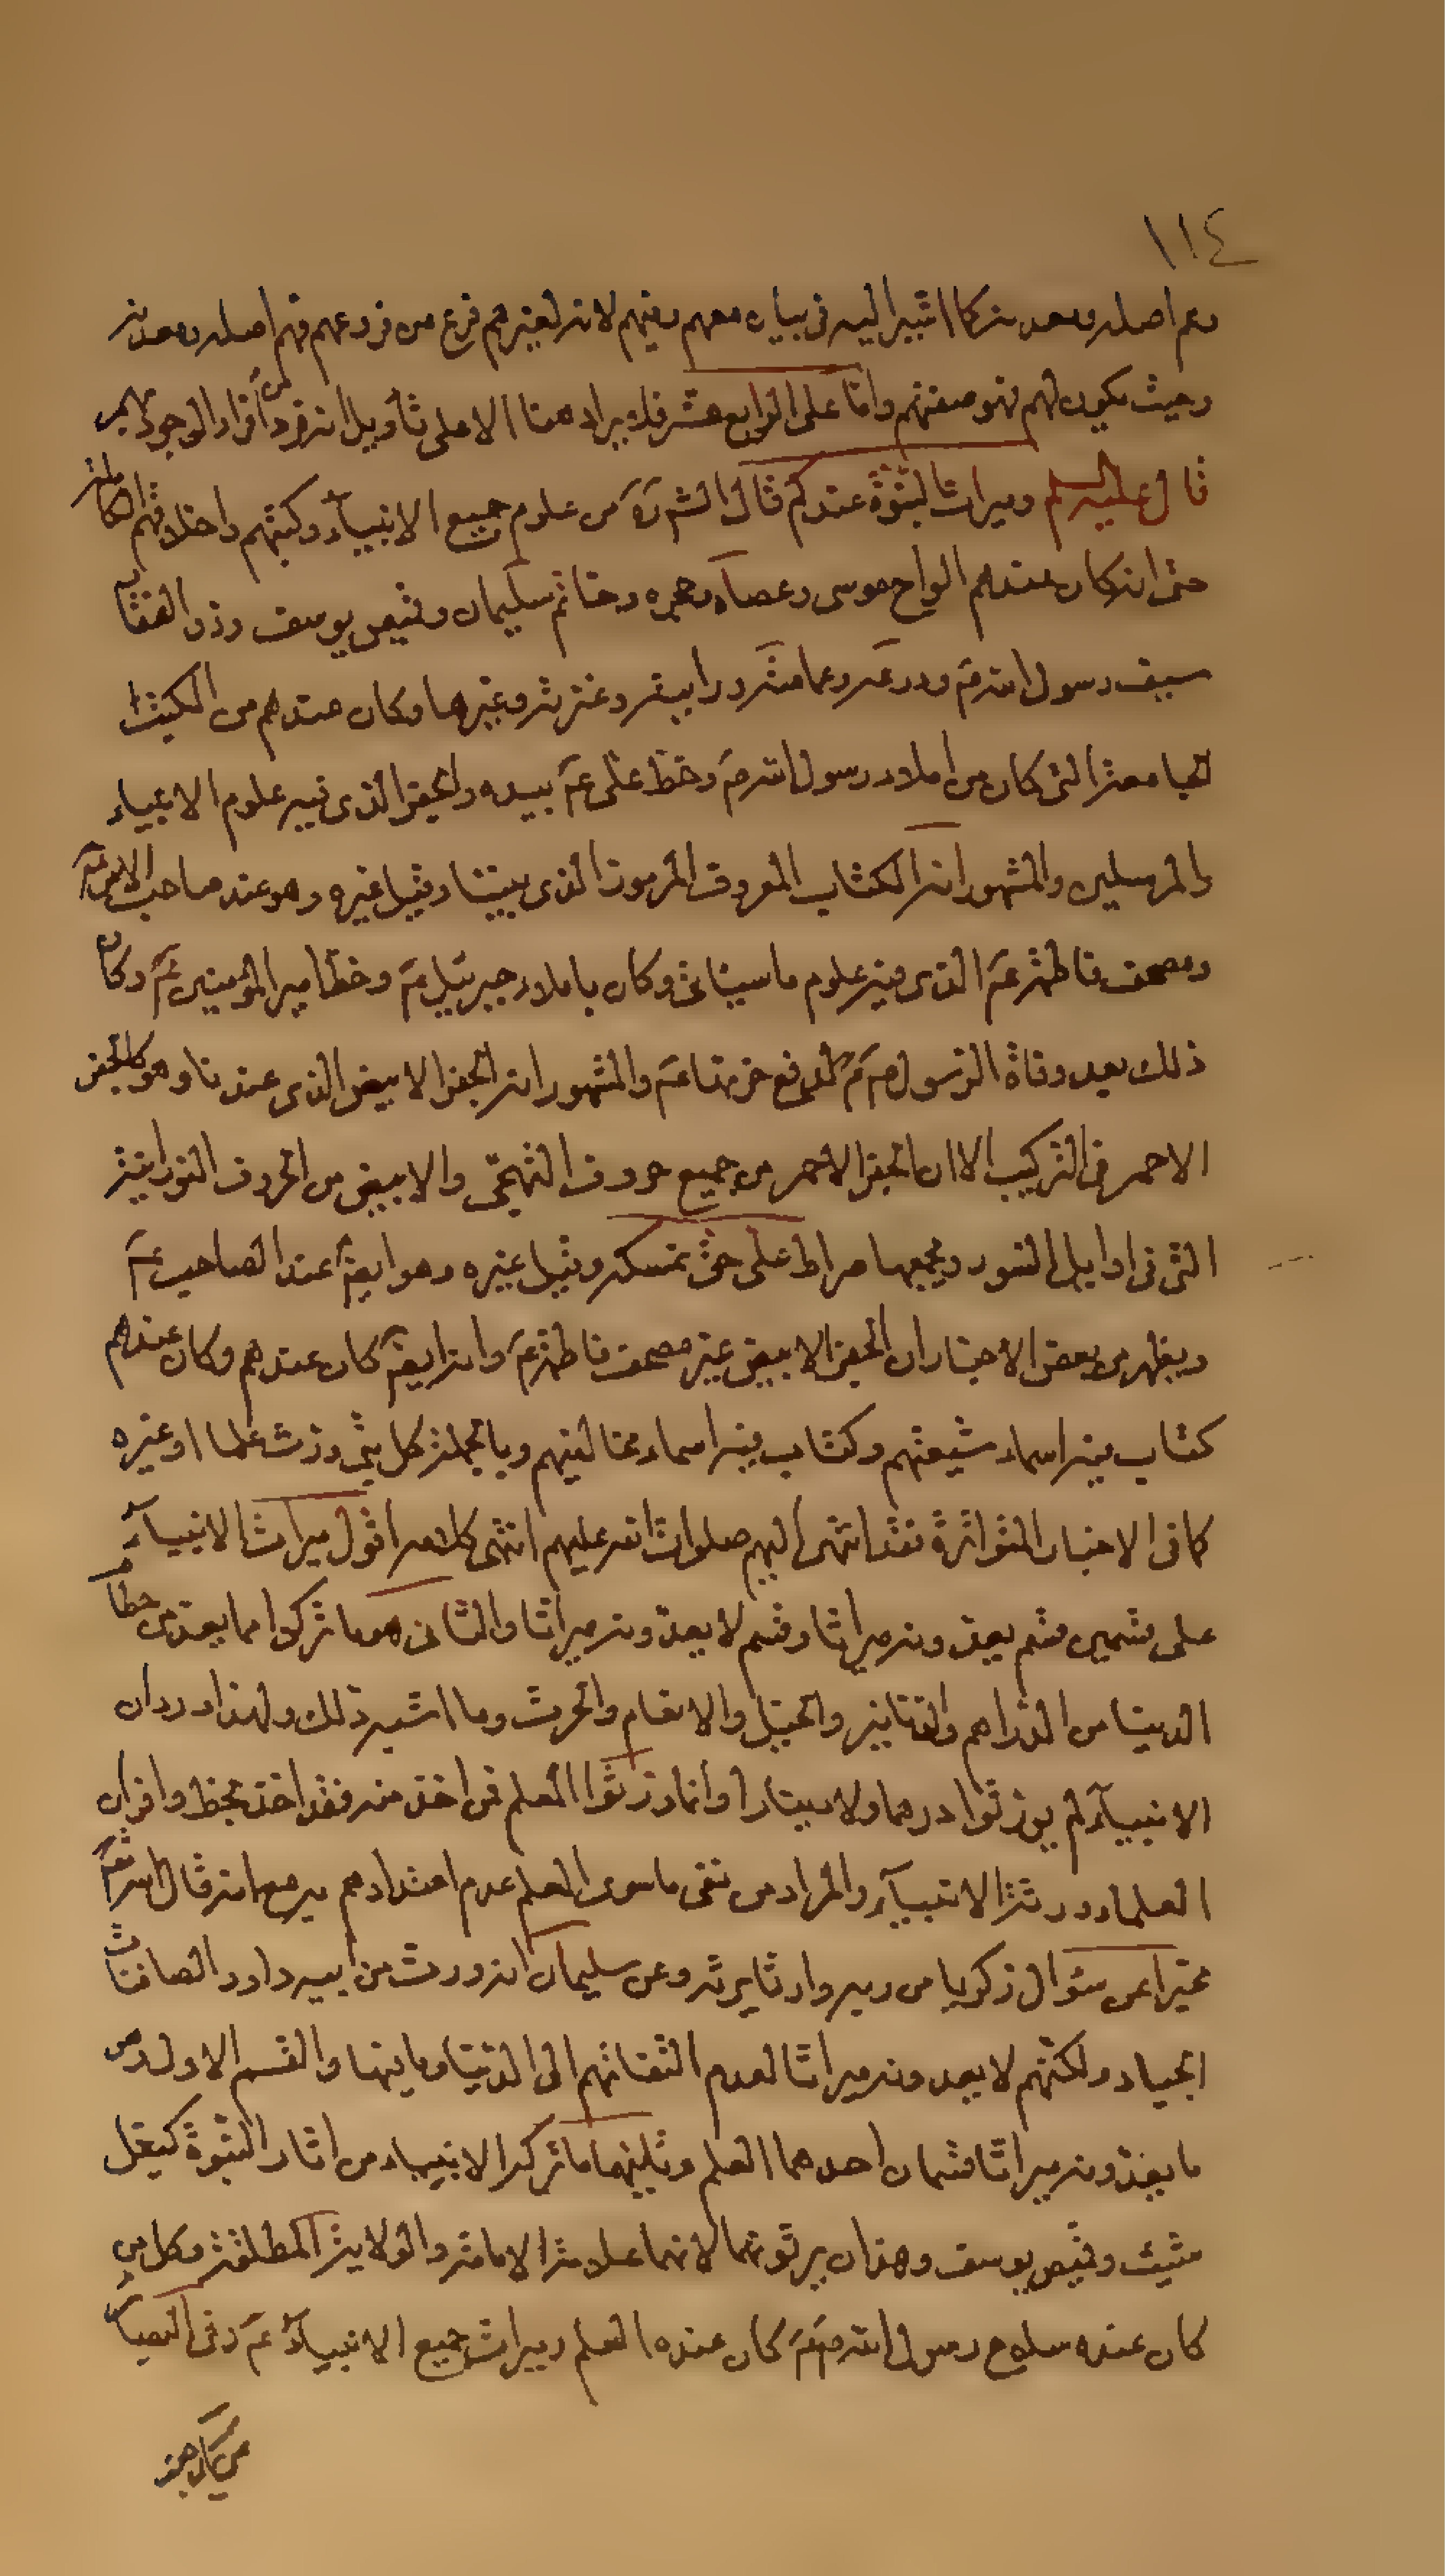 ١١٤
وهم اصله ومعدنه كما اشير اليه في بيان معهم وفيهم لانه لغيرهم فرع من فروعهم فهم اصله ومعدنه
وحيث يكون لهم فهو صفتهم واما على الرابع عشر فلا يراد هنا الا على تأويل انه فرد من أفراد الوجود
قال عليه السلم وميراث النبوة عندكم قال الش ره من علوم جميع الانبيآء وكتبهم واخلاقهم الكاملة
حتى انه كان عندهم الواح موسى وعصاه وحجره وخاتم سليمان وقميص يوسف وذو الفقار
سيف رسول الله ص ودرعه وعمامته ورايته وعنزته وغيرها وكان عندهم من الكتب
الجامعة التي كان من املاء رسول الله ص وخط علي ع بيده والجفر الذي فيه علوم الانبياء
والمرسلين والمشهور انه الكتاب المعروف المرموز الذي بيننا وقيل غيره وهو عند صاحب الامر ع
ومصحف فاطمة ع الذي فيه علوم ما سيأتي وكان باملاء جبرئيل ع وخط امير المؤمنين ع وكان
ذلك بعد وفاة الرسول ص لدفع حزنها ع والمشهور انه الجفر الابيض الذي عندنا وهو كالجفر
الاحمر في التركيب الا ان الجفر الاحمر من جميع حروف التهجي والابيض من الحروف النورانية
التي في اوايل السور ويجمعها صراط علي حق نمسكه وقيل غيره وهو ايضا عند الصاحب ع
ويظهر من بعض الاخبار ان الجفر الابيض غير مصحف فاطمة ع وانه ايضا كان عندهم وكان عندهم
كتاب فيه اسماء شيعتهم وكتاب فيه اسماء مخالفيهم وبالجملة كل نبي ورث علما او غيره
كما في الاخبار المتواترة فقد انتهى اليهم صلوات الله عليهم انتهى كلامه اقول ميراث الانبيآء
على قسمين قسم يعدونه ميراثا وقسم لا يعدونه ميراثا والثاني هو ما تركوا مما يعد من حطام
الدنيا من الدراهم والدنانير والخيل والانعام والحرث وما اشبه ذلك ولهذا ورد ان
الانبيآء لم يورثوا درهما ولا دينارا وانما ورثوا العلم فمن اخذ منه فقد اخذ بحظ وافر وان
العلماء ورثة الانبيآء والمراد من نفي ما سوى العلم عدم اعتدادهم به مع انه قال الله تعالى
مخبرا عن سؤال زكريا من ربه وارثا يرثه وعن سليمان انه ورث من ابيه داود الصافنات
الجياد ولكنهم لا يعدونه ميراثا لعدم التفاتهم الى الدنيا وما فيها والقسم الاول وهو
ما يعدونه ميراثا قسمان احدهما العلم وثانيهما ما تركه الانبياء من اثار النبوة كنعل
شيث وقميص يوسف وهذان يرثونهما لانهما علامة الامامة والولاية المطلقة وكل من
كان عنده سلاح رسول الله ص كان عنده العلم وميراث جميع الانبيآء ع وفي البصائر